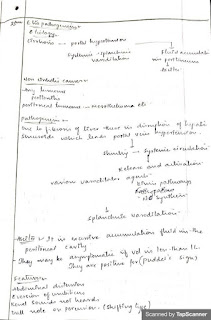 Etiopathogenesis
Etiology
Cirrhosis → portal hypertension
Systemic - splanchnic
vasodilation
fluid accumulation
in peritoneum
Non cirrhotic causes
Any tumours
peritonitis
peritoneal tumours - mesothelioma etc
Pathogenesis
Due to fibrosis of liver there is disruption of hepatic
sinusoids which leads portal vein hypertension.
Shunting → systemic circulation
Release and activation
various vasodilator agents
pathways
NO synthesis
splanchnic vasodilation.
Ascites → It is excessive accumulation fluid in the
peritoneal cavity
They may be asymptomatic if vol is less than 1L
They are positive for (Puddle's sign)
Features
Abdominal distension
Eversion of umbilicus
sound not heard
Dull note on percussion (Shifting
Scanned by TapScanner